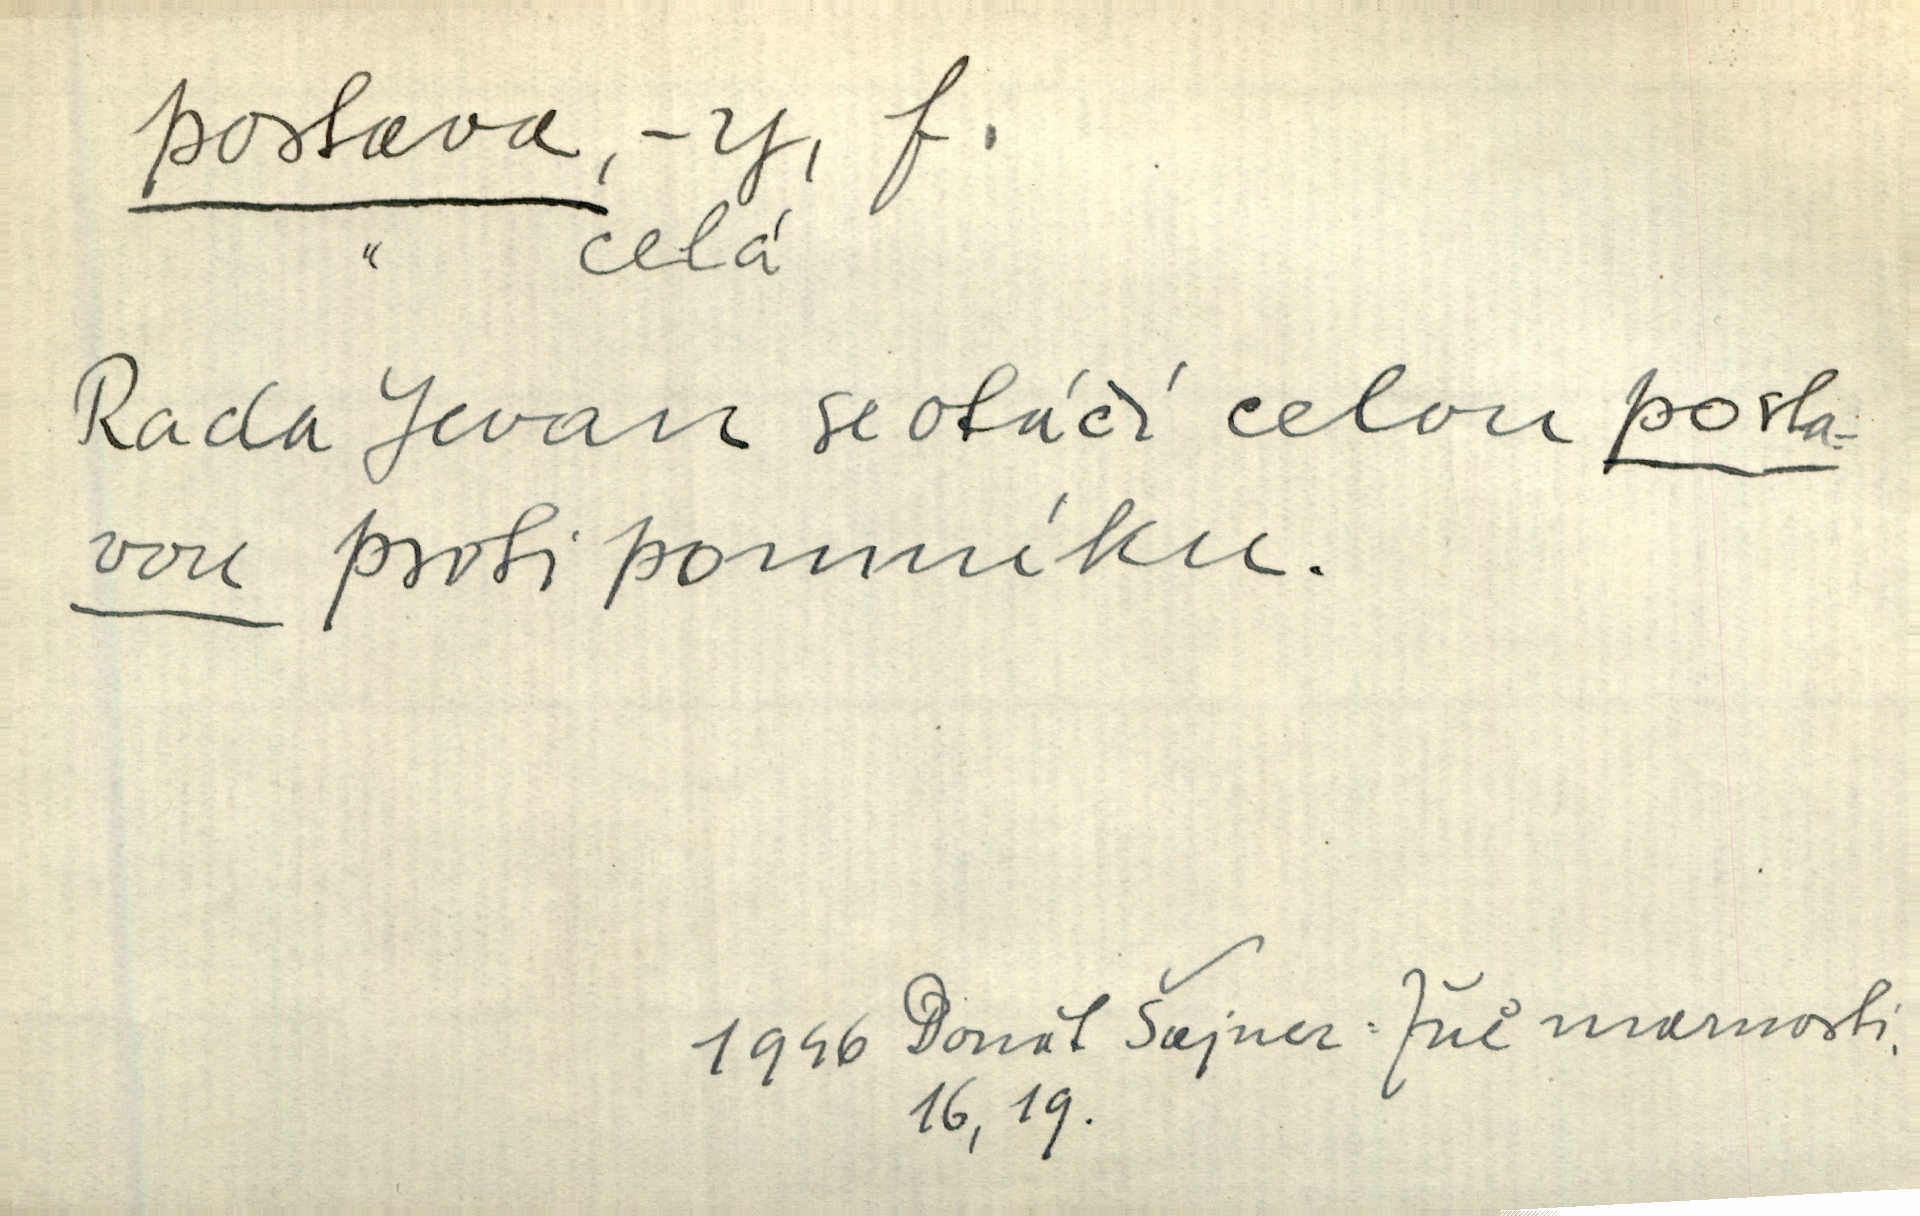 postava, -y, f.
" celá
Rada Jevan se otáčí celou posta-
vou proti pomníku.
1946 Donát Šajner: marnosti.
16, 19.